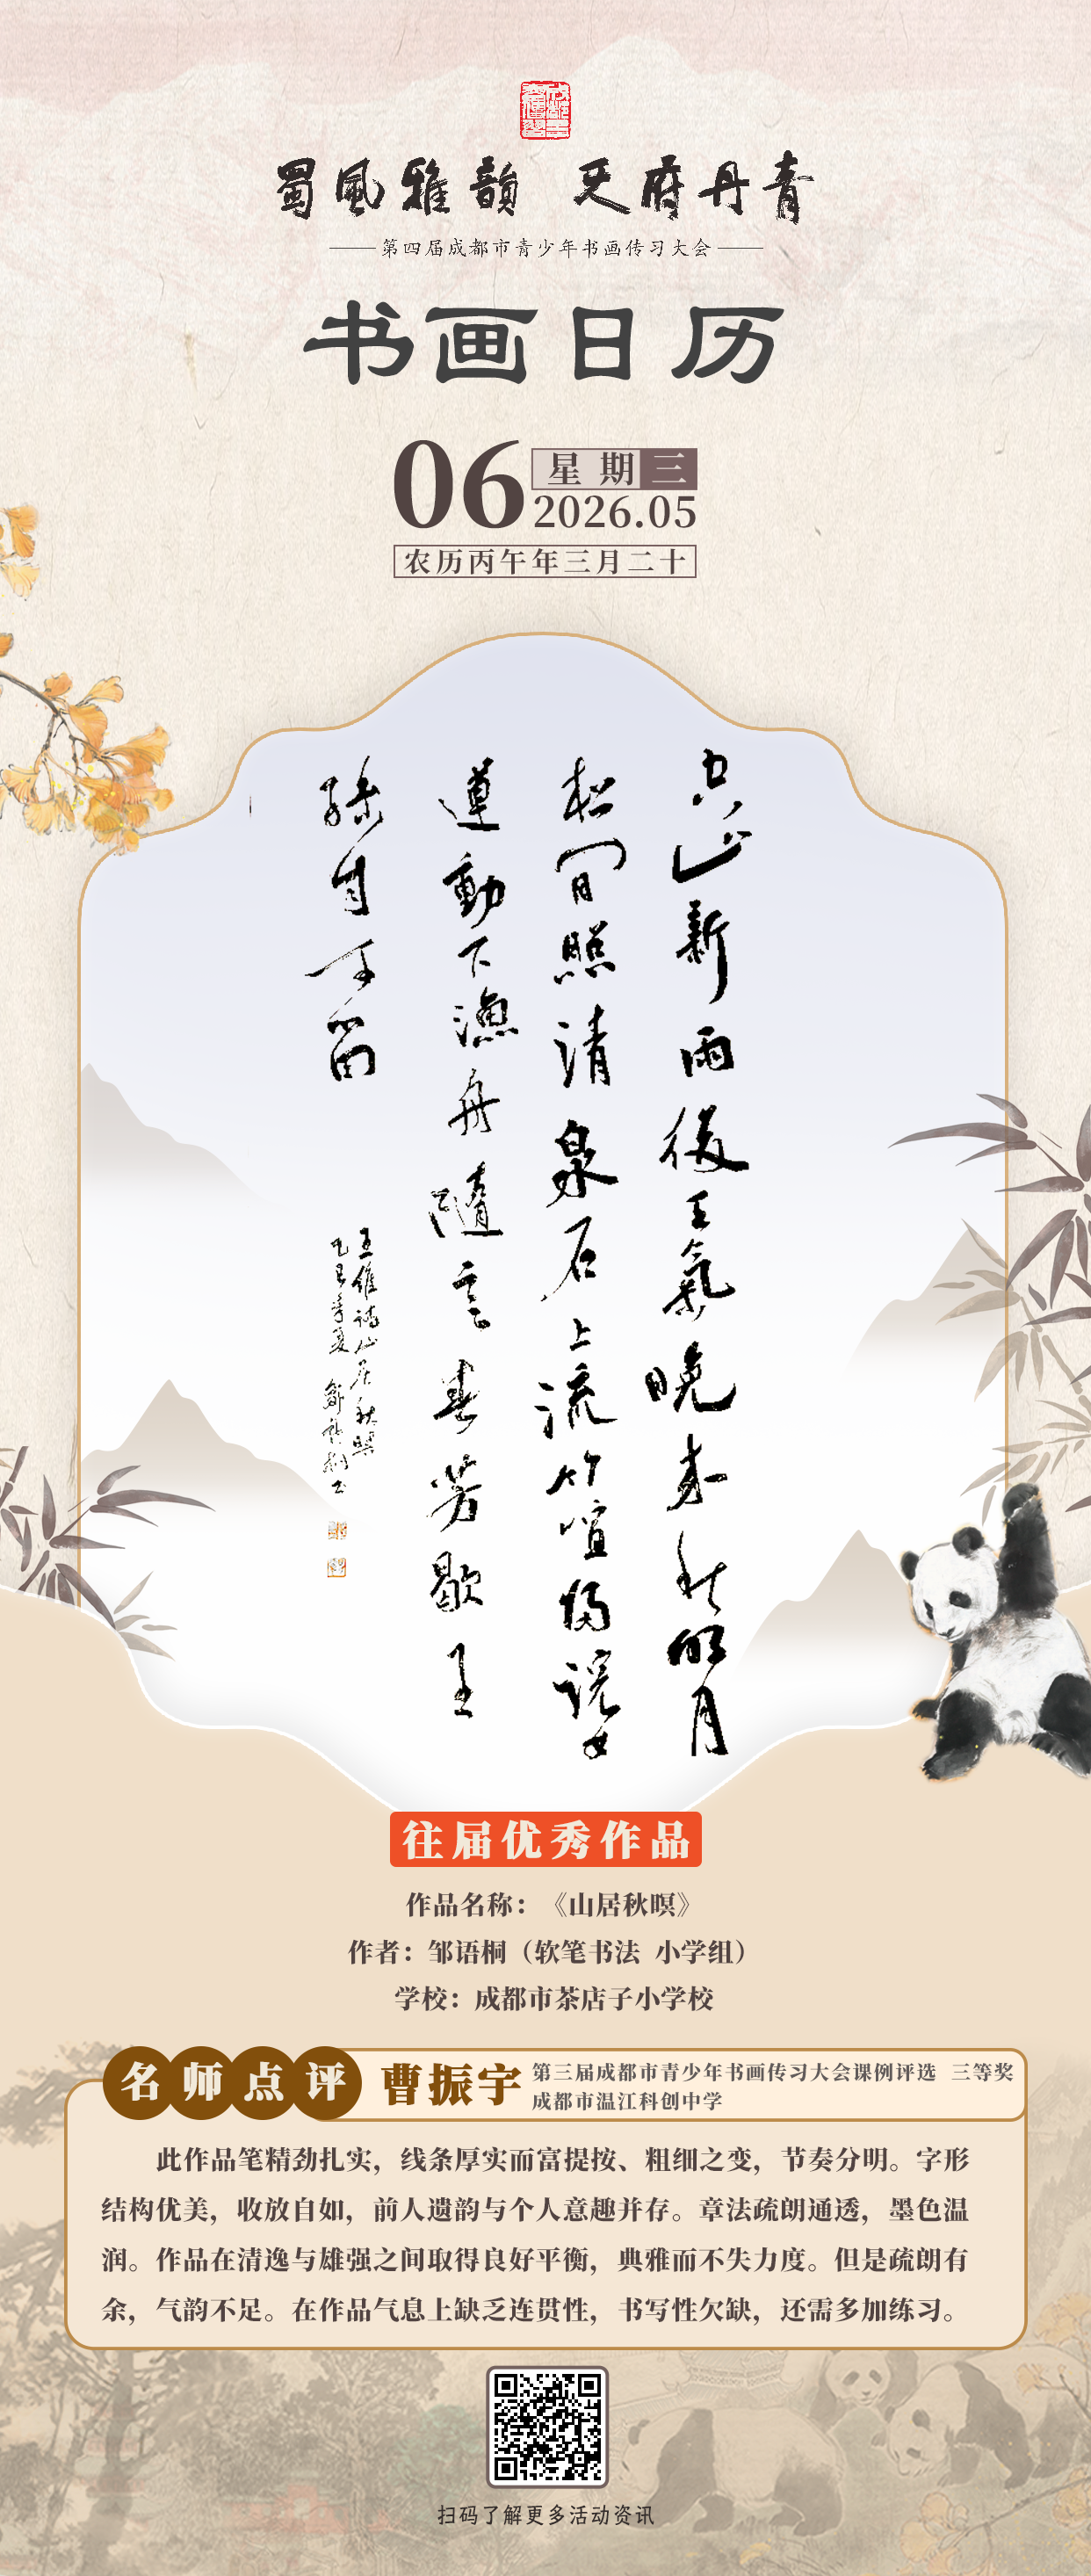 蜀風雅韻 天府丹青
第四届成都市青少年书画传习大会
书画日历
06
星期三
2026.05
农历丙午年三月二十
空山新雨後天氣晚来秋明月
松间照清泉石上流竹喧歸浣女
蓮動下漁舟隨意春芳歇王
孫自可留
王維詩山居秋暝
乙巳年夏 鄒語桐书
往届优秀作品
作品名称：《山居秋暝》
作者：邹语桐（软笔书法 小学组）
学校：成都市茶店子小学校
名师点评
曹振宇
第三届成都市青少年书画传习大会课例评选 三等奖
成都市温江科创中学
此作品笔精劲扎实，线条厚实而富提按、粗细之变，节奏分明。字形
结构优美，收放自如，前人遗韵与个人意趣并存。章法疏朗通透，墨色温
润。作品在清逸与雄强之间取得良好平衡，典雅而不失力度。但是疏朗有
余，气韵不足。在作品气息上缺乏连贯性，书写性欠缺，还需多加练习。
扫码了解更多活动资讯